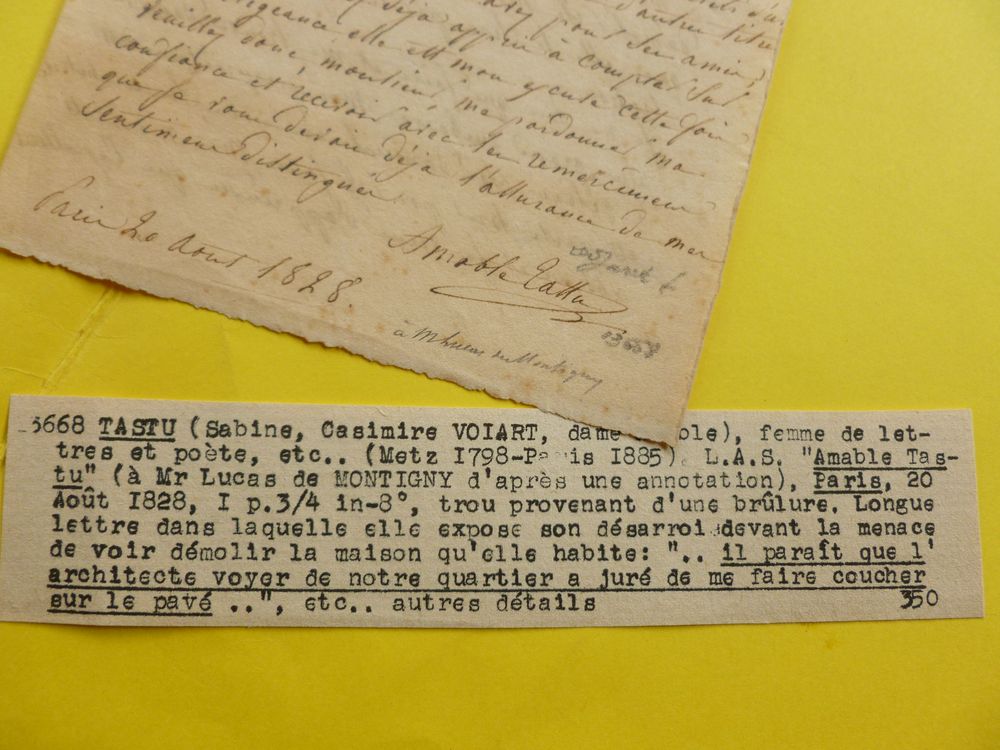 déjà appris à compter sur
elle est mon excuse cette fois
veuillez donc, monsieur, me pardonner ma
confiance et recevoir avec les remerciemens
que je vous devrai déjà l'assurance de mes
Sentimens distingués
Amable Tastu
Paris 20 Aout 1828.
13668
à M Lucas de Montigny
3668 TASTU (Sabine, Casimire VOIART, dame ble), femme de let-
tres et poète, etc.. (Metz I798-Paris I885). L.A.S. "Amable Tas-
tu" (à Mr Lucas de MONTIGNY d'après une annotation), Paris, 20
Août I828, I p.3/4 in-8°, trou provenant d'une brûlure. Longue
lettre dans laquelle elle expose son désarroi devant la menace
de voir démolir la maison qu'elle habite: ".. il paraît que l'
architecte voyer de notre quartier a juré de me faire coucher
sur le pavé ..", etc.. autres détails 350